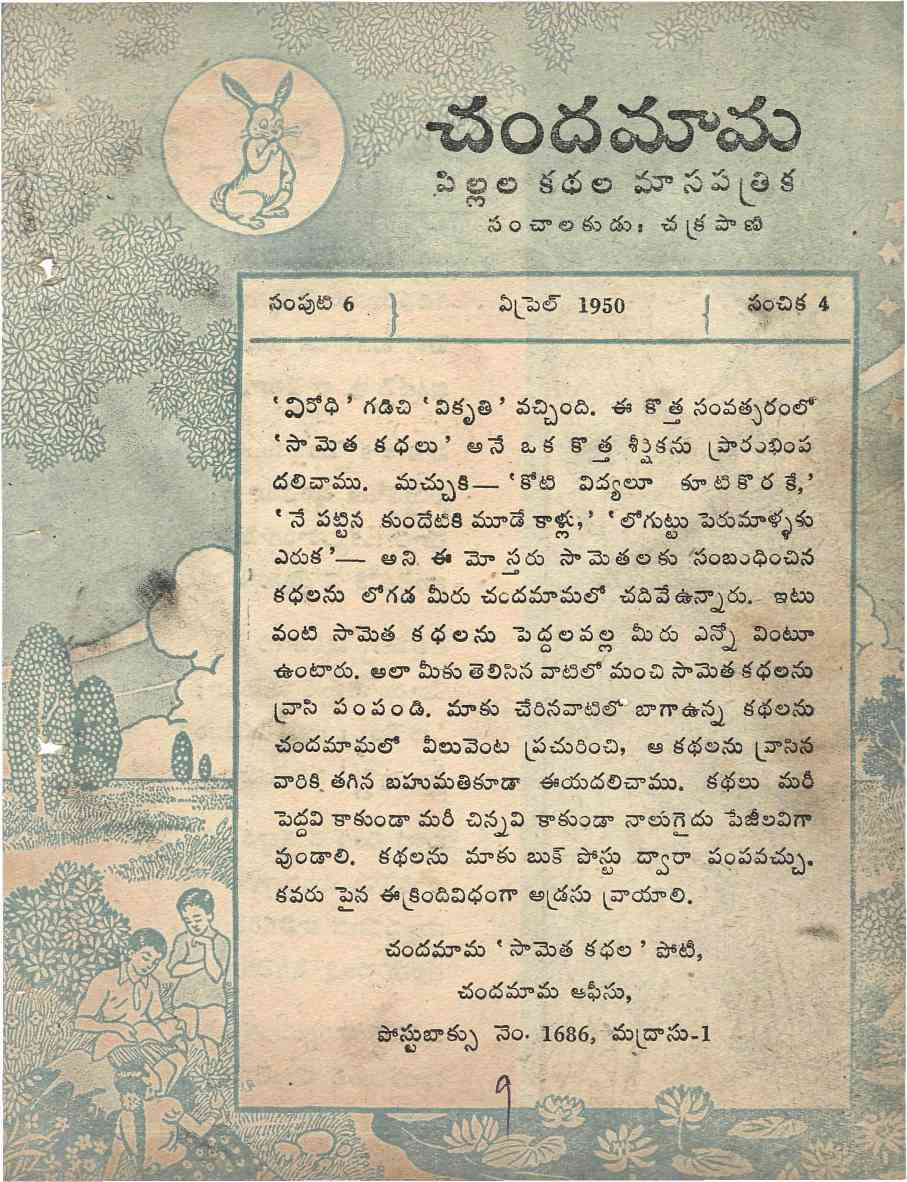 చందమామ
పిల్లల కథల మాసపత్రిక
సంచాలకుడు: చక్రపాణి
సంపుటి 6 } ఏప్రెల్ 1950 { సంచిక 4
‘విరోధి’ గడిచి ‘వికృతి’ వచ్చింది. ఈ కొత్త సంవత్సరంలో
‘సామెత కధలు’ అనే ఒక కొత్త శీర్షికను ప్రారంభింప
దలిచాము. మచ్చుకి—‘కోటి విద్యలూ కూటికొరకే,’
‘నే పట్టిన కుందేటికి మూడే కాళ్లు,’ ‘లోగుట్టు పెరుమాళ్ళకు
ఎరుక’— అని ఈ మోస్తరు సామెతలకు సంబంధించిన
కధలను లోగడ మీరు చందమామలో చదివేఉన్నారు. ఇటు
వంటి సామెత కధలను పెద్దలవల్ల మీరు ఎన్నో వింటూ
ఉంటారు. అలా మీకు తెలిసిన వాటిలో మంచి సామెత కధలను
వ్రాసి పంపండి. మాకు చేరినవాటిలో బాగాఉన్న కథలను
చందమామలో వీలువెంట ప్రచురించి, ఆ కథలను వ్రాసిన
వారికి తగిన బహుమతికూడా ఈయదలిచాము. కథలు మరీ
పెద్దవి కాకుండా మరీ చిన్నవి కాకుండా నాలుగైదు పేజీలవిగా
వుండాలి. కథలను మాకు బుక్ పోస్టు ద్వారా పంపవచ్చు.
కవరు పైన ఈక్రిందివిధంగా అడ్రసు వ్రాయాలి.
చందమామ ‘సామెత కధల’ పోటీ,
చందమామ ఆఫీసు,
పోస్టుబాక్సు నెం. 1686, మద్రాసు-1
9